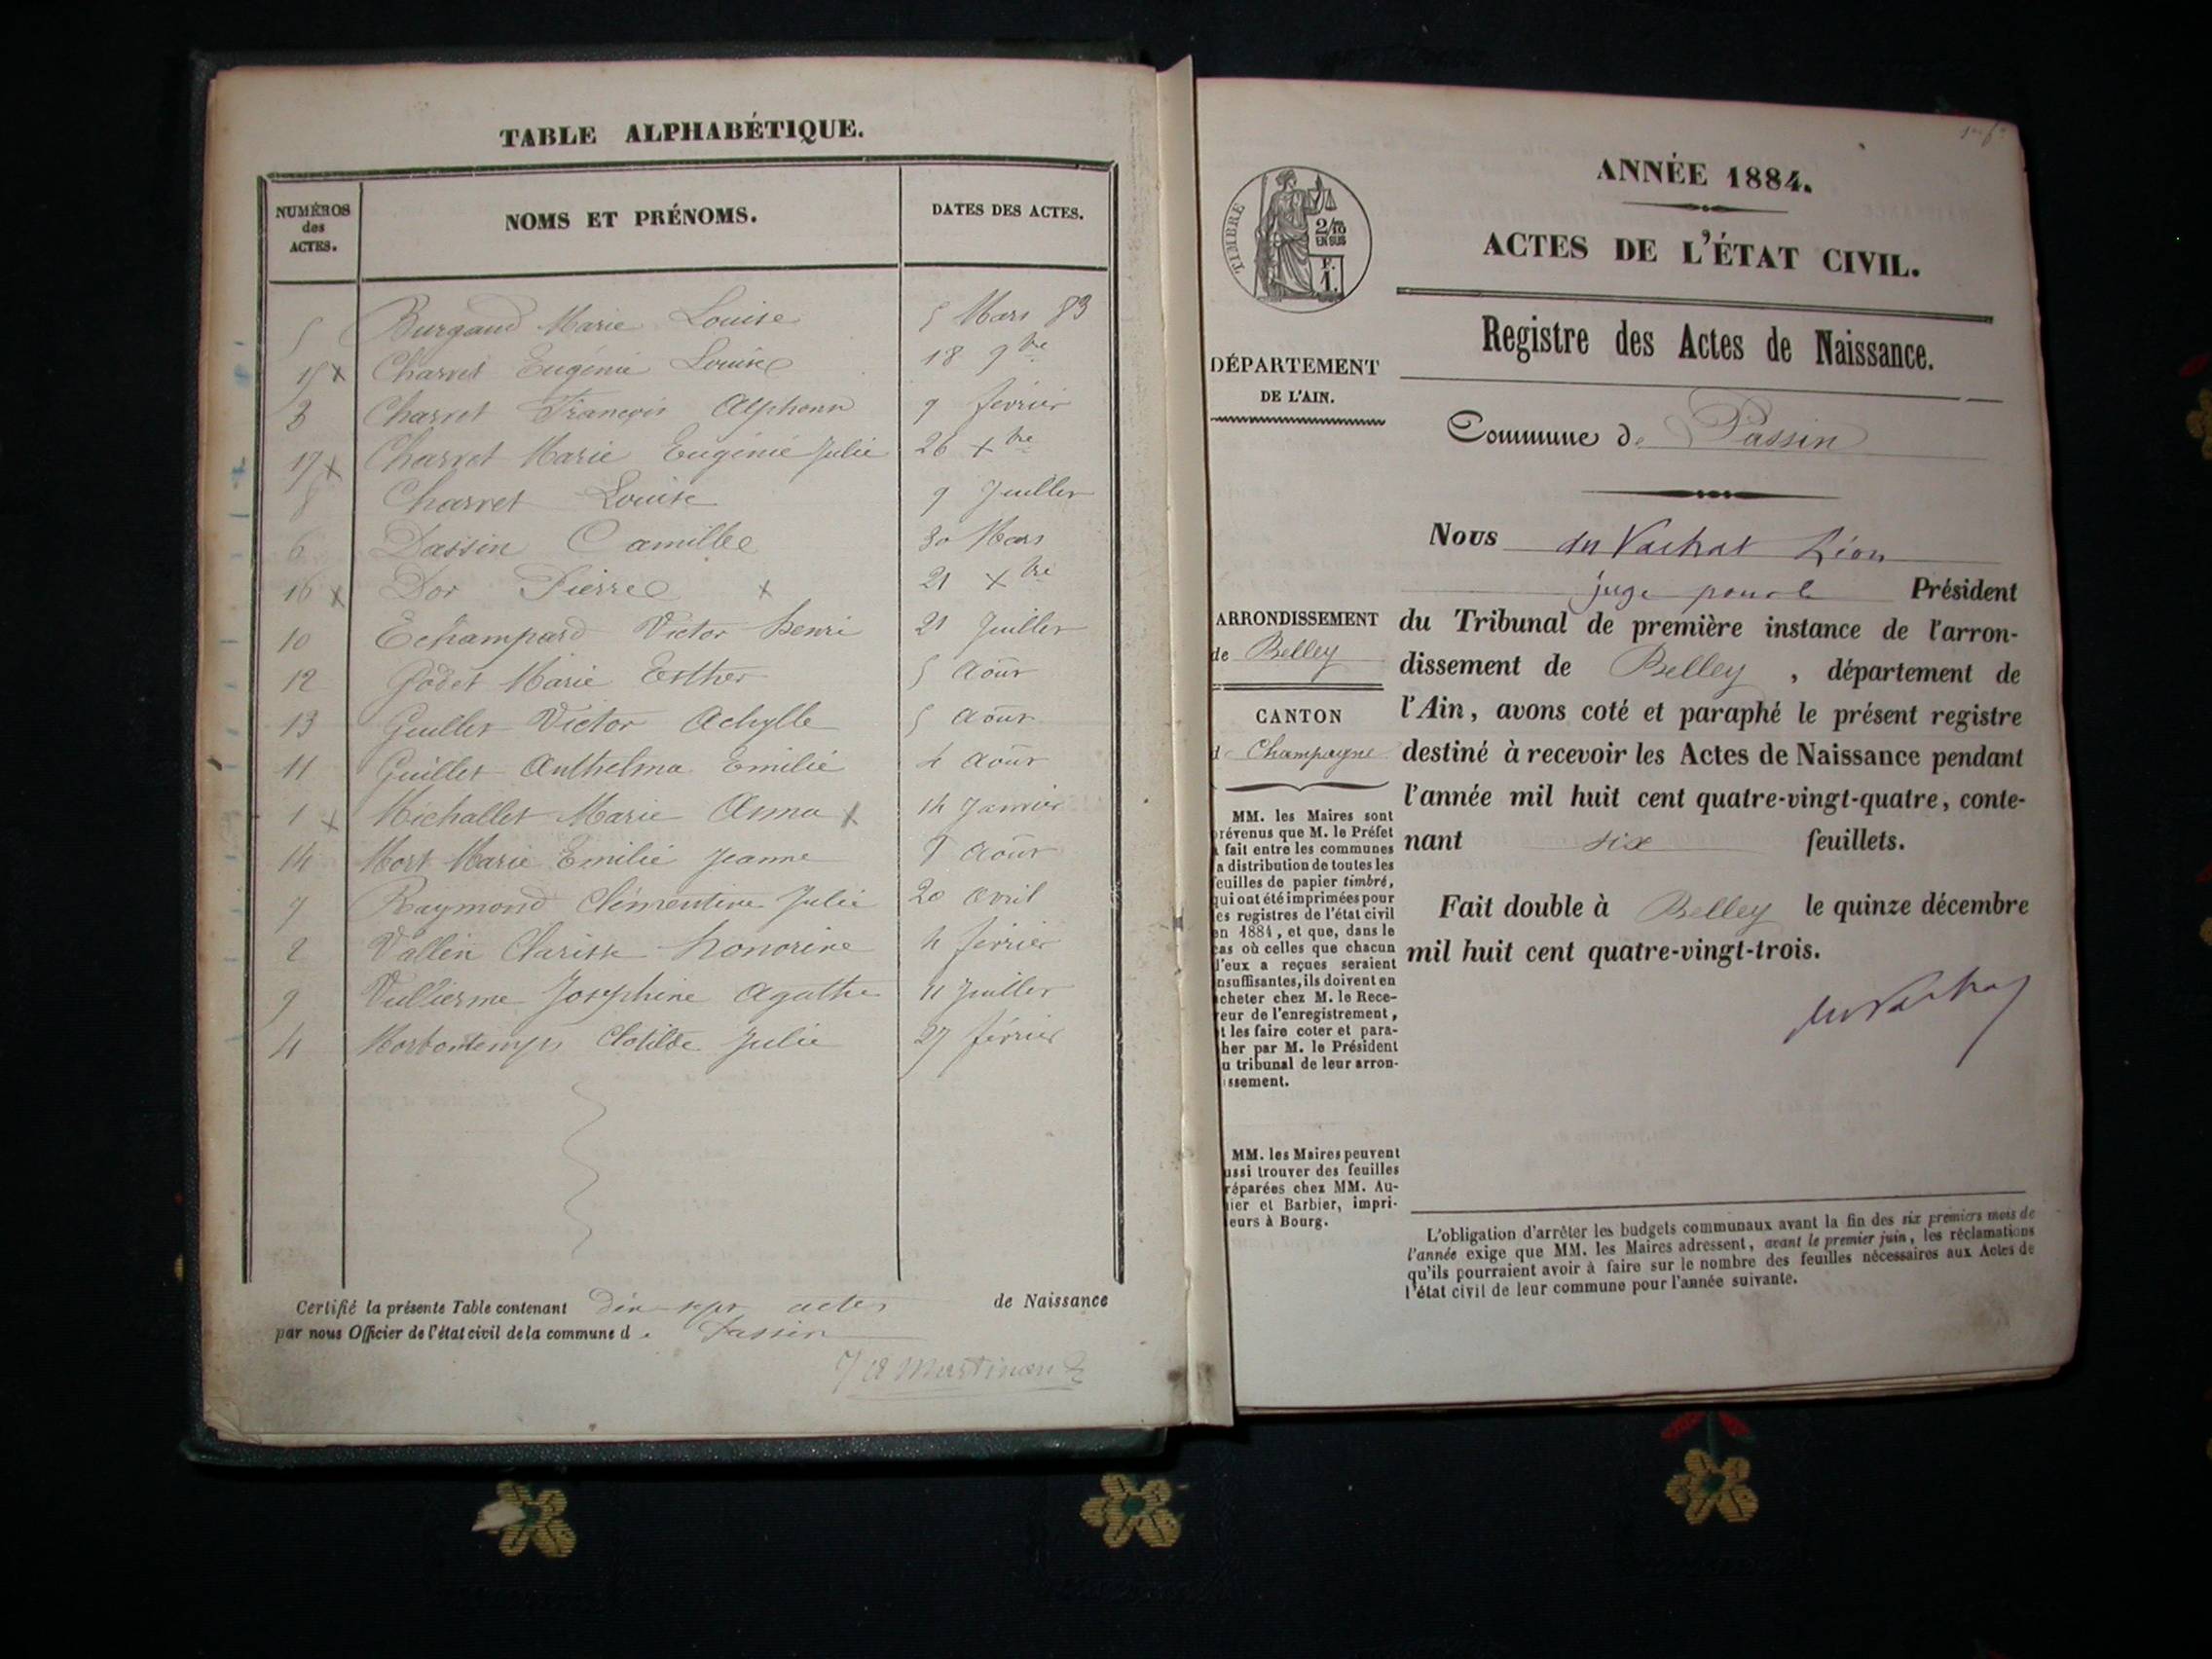 TABLE ALPHABÉTIQUE.
NUMÉROS des ACTES. NOMS ET PRÉNOMS. DATES DES ACTES.
5 Burgaud Marie Louise 5 Mars 83
15 x Charvet Eugénie Louise 18 9bre
3 Charvet François Alphonse 9 février
17 x Charvet Marie Eugénie Julie 26 xbre
8 Charvet Louise 9 Juillet
6 Dassin Camille 30 Mars
16 x Dor Pierre x 21 xbre
10 Echampard Victor henri 21 Juillet
12 Godet Marie Esther 5 Août
13 Guillet Victor Achylle 5 Août
11 Guillet Anthelma Emilie 4 Août
1 x Michallet Marie Anna x 14 Janvier
14 Mort Marie Emilie Jeanne 8 Août
7 Raymond Clémentine Julie 20 Avril
2 Vallin Clarisse honorine 4 février
9 Vullierme Joséphine Agathe 11 Juillet
4 Morbontemps Clotilde Julie 27 février
Certifié la présente Table contenant dix sept actes de Naissance
par nous Officier de l'état civil de la commune de Passin
1er fo
ANNÉE 1884.
ACTES DE L'ÉTAT CIVIL.
Registre des Actes de Naissance.
Commune de Passin
TIMBRE
2/10
EN SUS
F.
1.
DÉPARTEMENT
DE L'AIN.
ARRONDISSEMENT
de Belley
CANTON
d Champagne
MM. les Maires sont
prévenus que M. le Préfet
a fait entre les communes
la distribution de toutes les
feuilles de papier timbré,
qui ont été imprimées pour
les registres de l'état civil
en 1884, et que, dans le
cas où celles que chacun
d'eux a reçues seraient
insuffisantes, ils doivent en
acheter chez M. le Rece-
veur de l'enregistrement,
et les faire coter et para-
pher par M. le Président
du tribunal de leur arron-
dissement.
MM. les Maires peuvent
aussi trouver des feuilles
préparées chez MM. Au-
ier et Barbier, impri-
meurs à Bourg.
Nous du Vachat Léon
juge pour le Président
du Tribunal de première instance de l'arron-
dissement de Belley, département de
l'Ain, avons coté et paraphé le présent registre
destiné à recevoir les Actes de Naissance pendant
l'année mil huit cent quatre-vingt-quatre, conte-
nant six feuillets.
Fait double à Belley le quinze décembre
mil huit cent quatre-vingt-trois.
du Vachat
L'obligation d'arrêter les budgets communaux avant la fin des six premiers mois de
l'année exige que MM. les Maires adressent, avant le premier juin, les réclamations
qu'ils pourraient avoir à faire sur le nombre des feuilles nécessaires aux Actes de
l'état civil de leur commune pour l'année suivante.